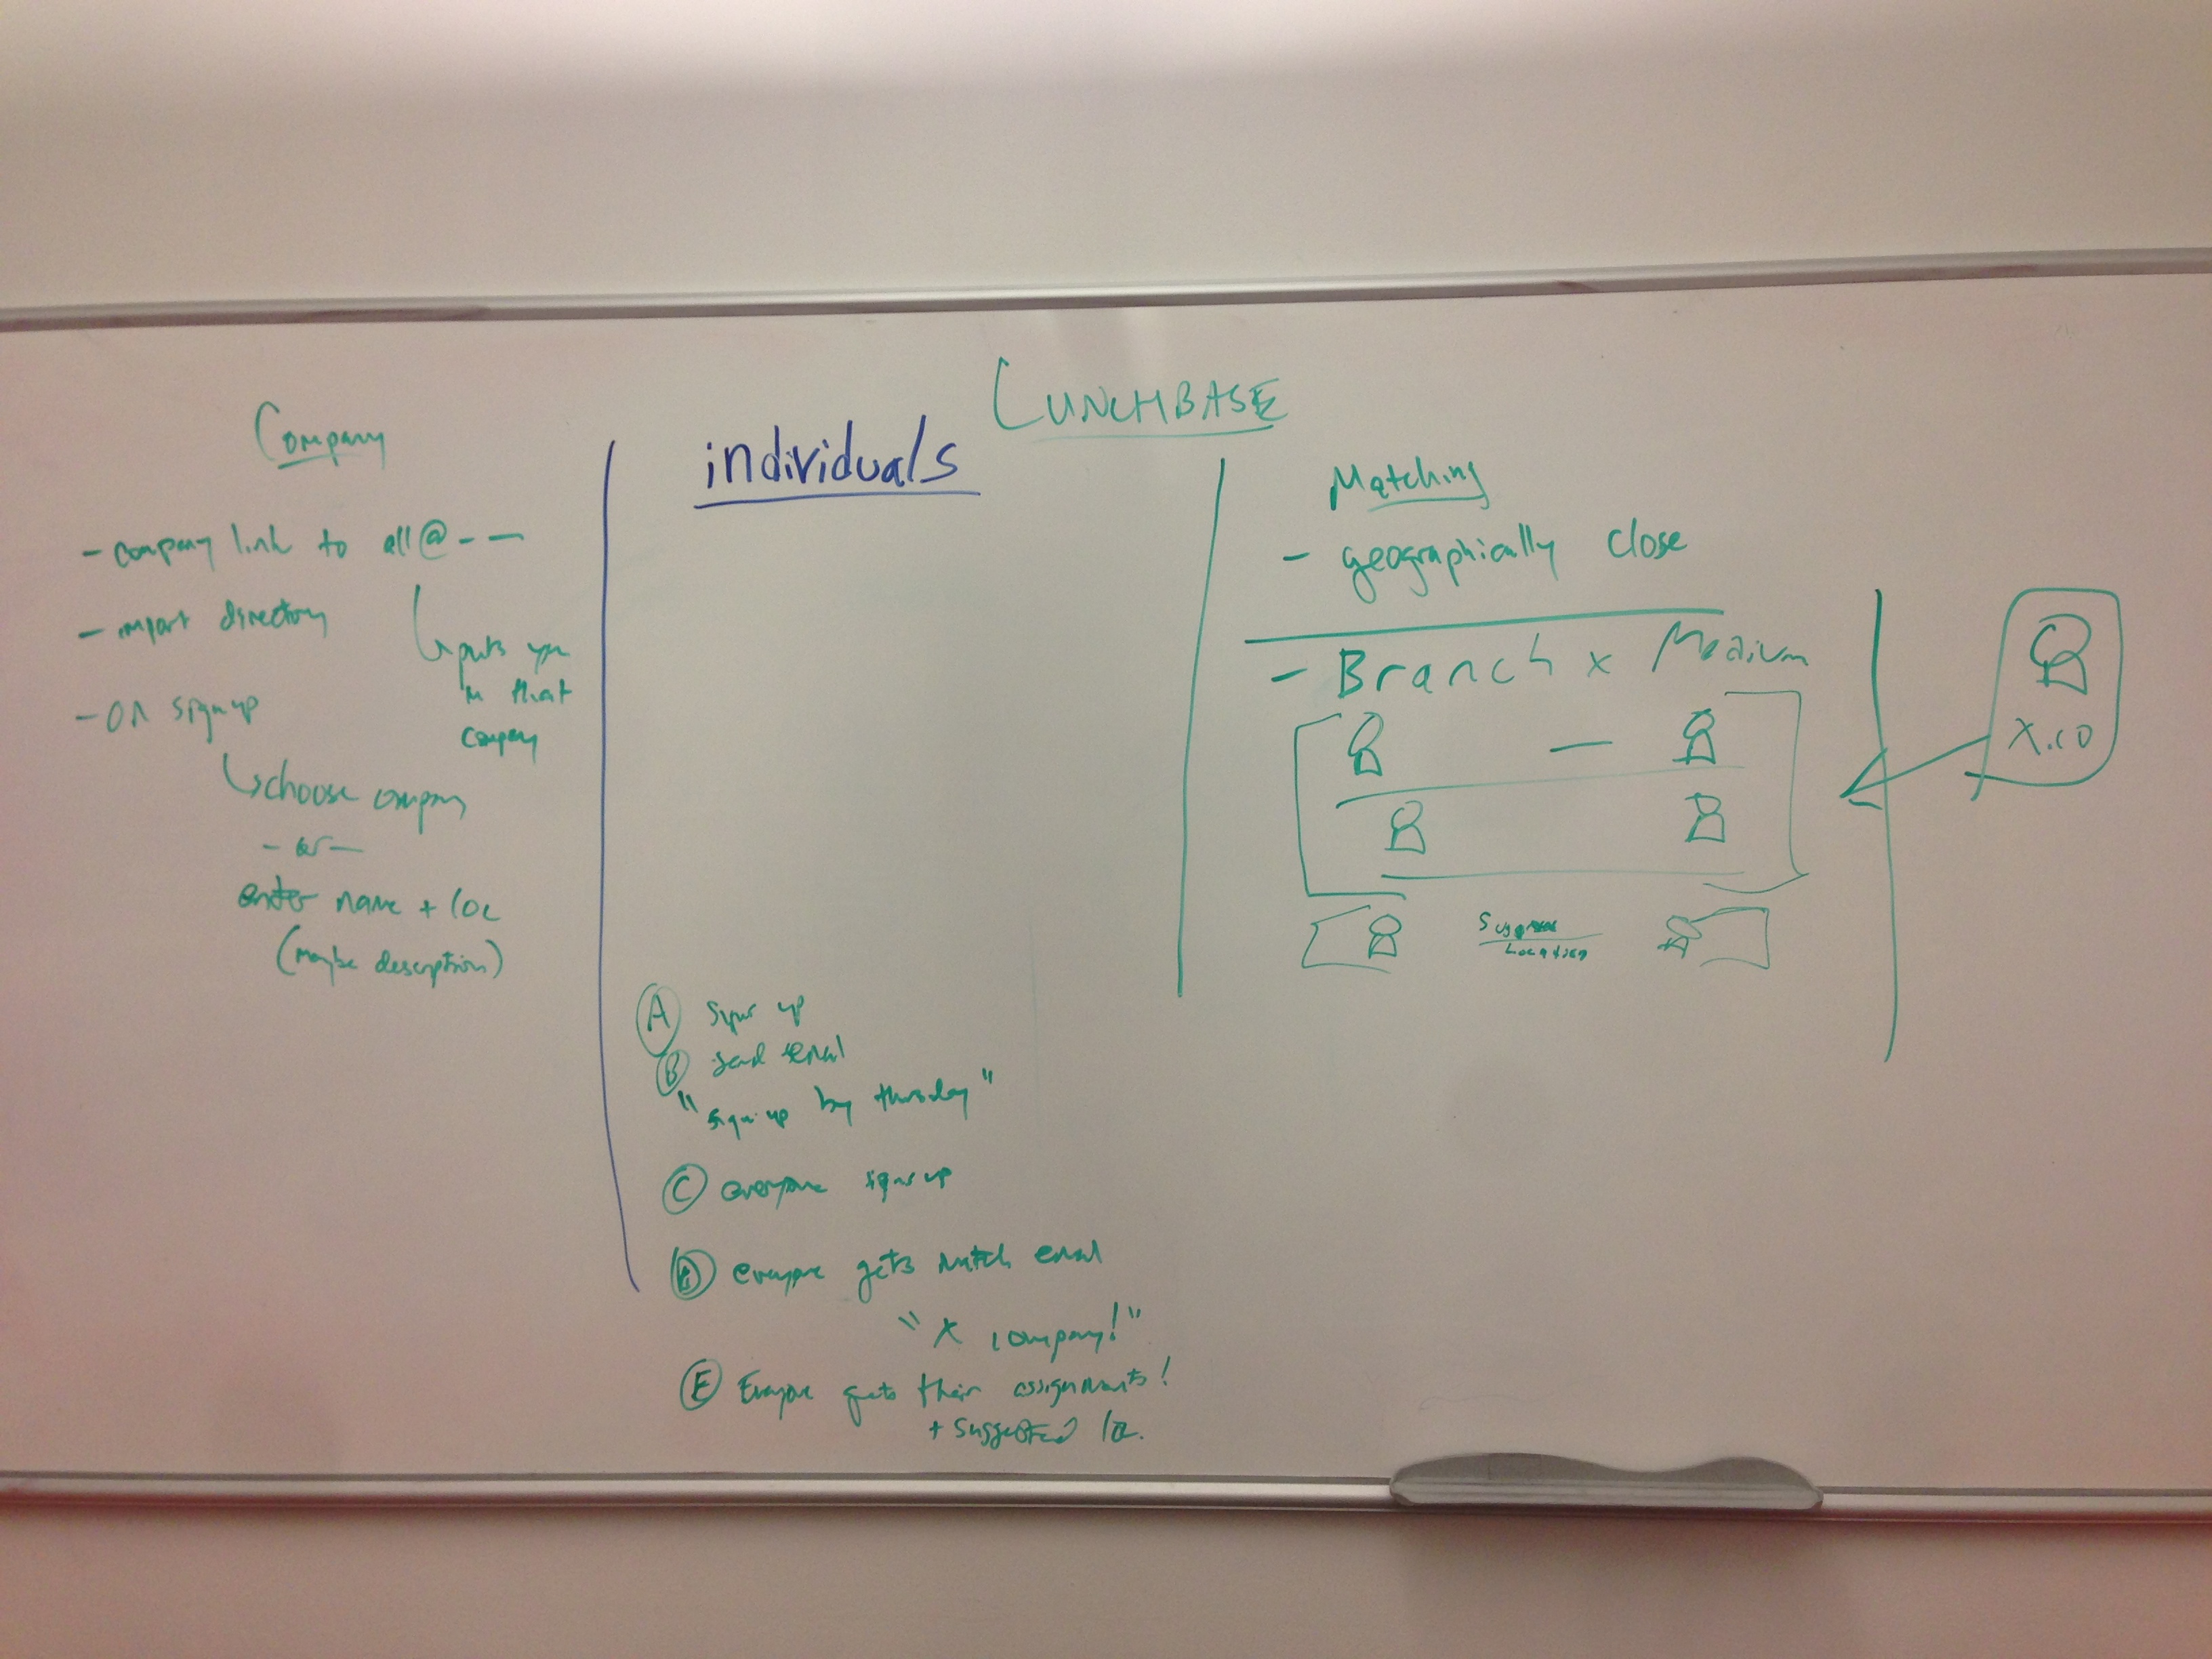 LUNCHBASE
Company
- company link to all@--
puts you
in that
company
- import directory
- on signup
choose company
- or -
enter name + loc
(maybe description)
individuals
A sign up
B send email
"sign up by thursday"
C everyone signs up
D everyone gets match email
"X company!"
E Everyone gets their assignments!
+ suggested loc.
Matching
- geographically close
- Branch x Medium
Suggested
Location
X.co